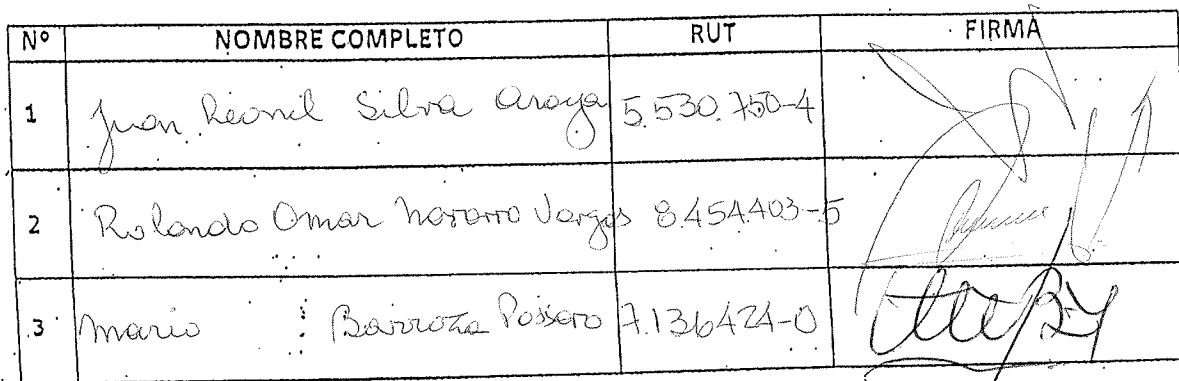 Nº NOMBRE COMPLETO RUT FIRMA
1 Juan Leonil Silva Araya 5.530.750-4
2 Rolando Omar Navarro Vargas 8.454.403-5
3 Mario Barroza 7.136424-0